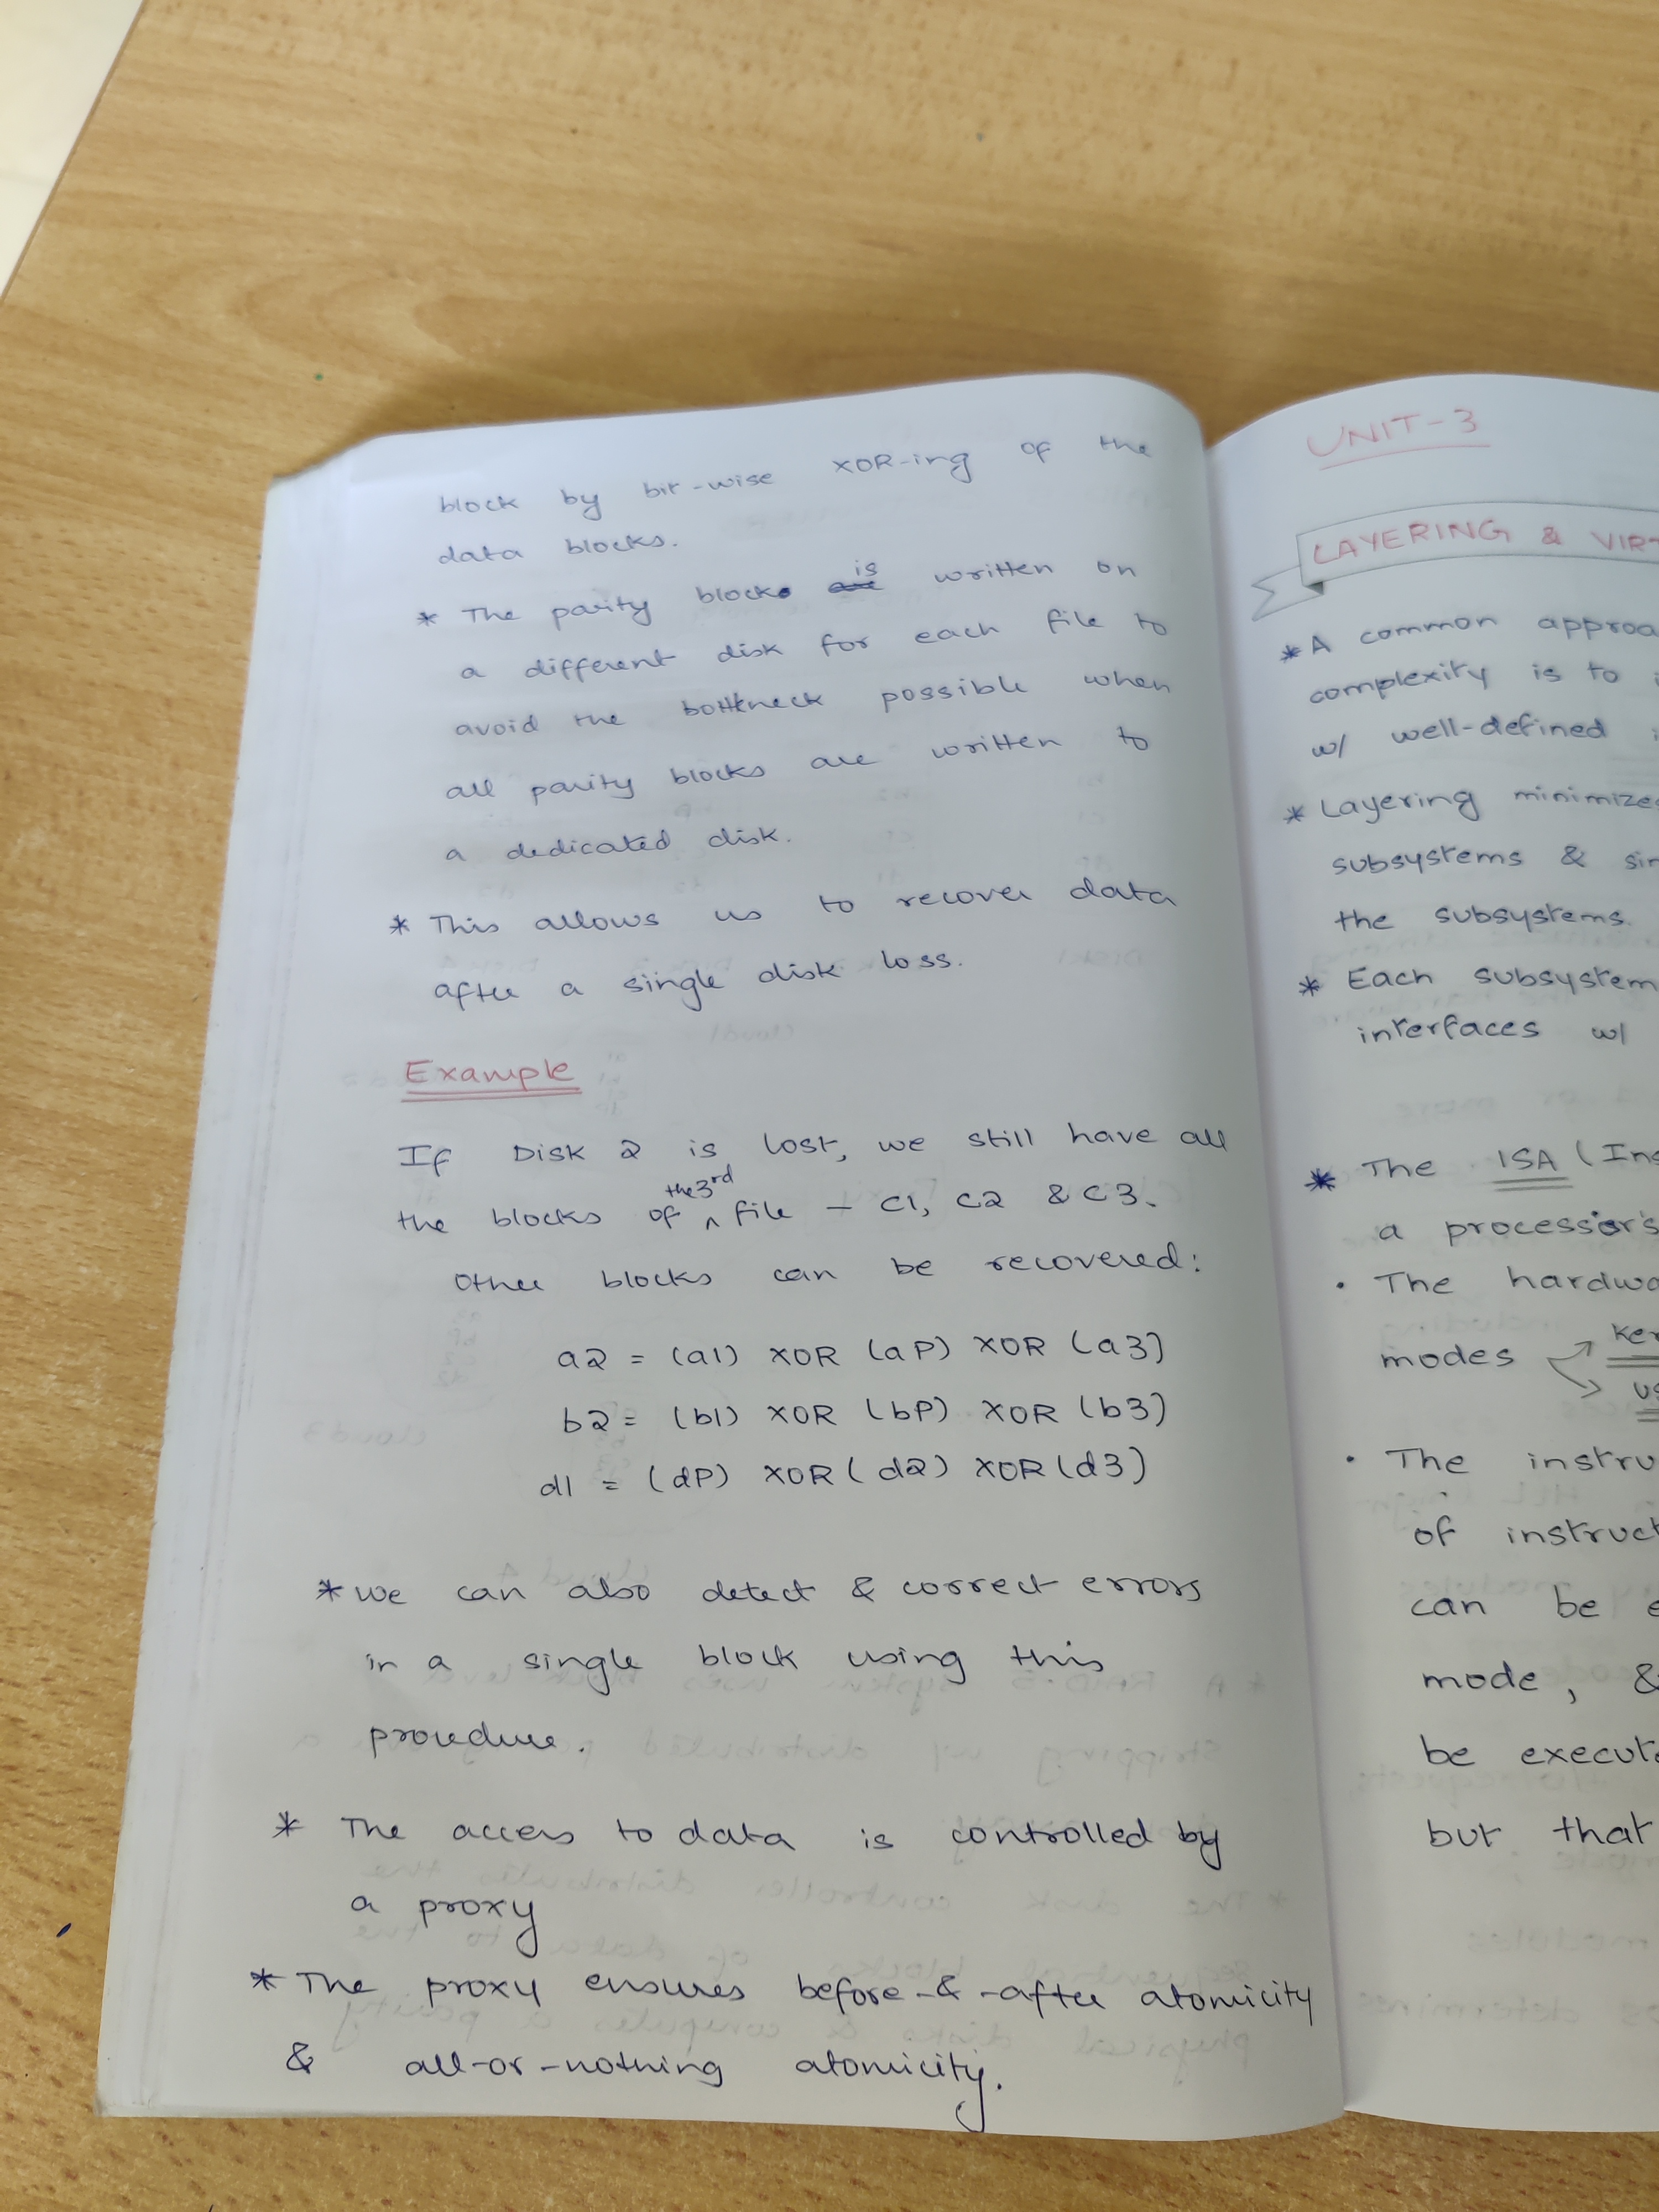 block by bit-wise XOR-ing of the
data blocks.
* The parity block is written on
a different disk for each file to
avoid the bottleneck possible when
all parity blocks are written to
a dedicated disk.
* This allows us to recover data
after a single disk loss.
Example
If Disk 2 is lost, we still have all
the blocks of the 3rd file - C1, C2 & C3.
Other blocks can be recovered:
a2 = (a1) XOR (aP) XOR (a3)
b2 = (b1) XOR (bP) XOR (b3)
d1 = (dP) XOR (d2) XOR (d3)
* we can also detect & correct errors
in a single block using this
procedure.
* The access to data is controlled by
a proxy
* The proxy ensures before-&-after atomicity
& all-or-nothing atomicity.
UNIT-3
LAYERING & VIRT
* A common approa
complexity is to
w/ well-defined
* Layering minimizes
subsystems & sim
the subsystems.
* Each subsystem
interfaces w/
* The ISA (Ins
a processor's
• The hardwa
modes Ker
us
• The instru
of instruct
can be e
mode, &
be execute
but that